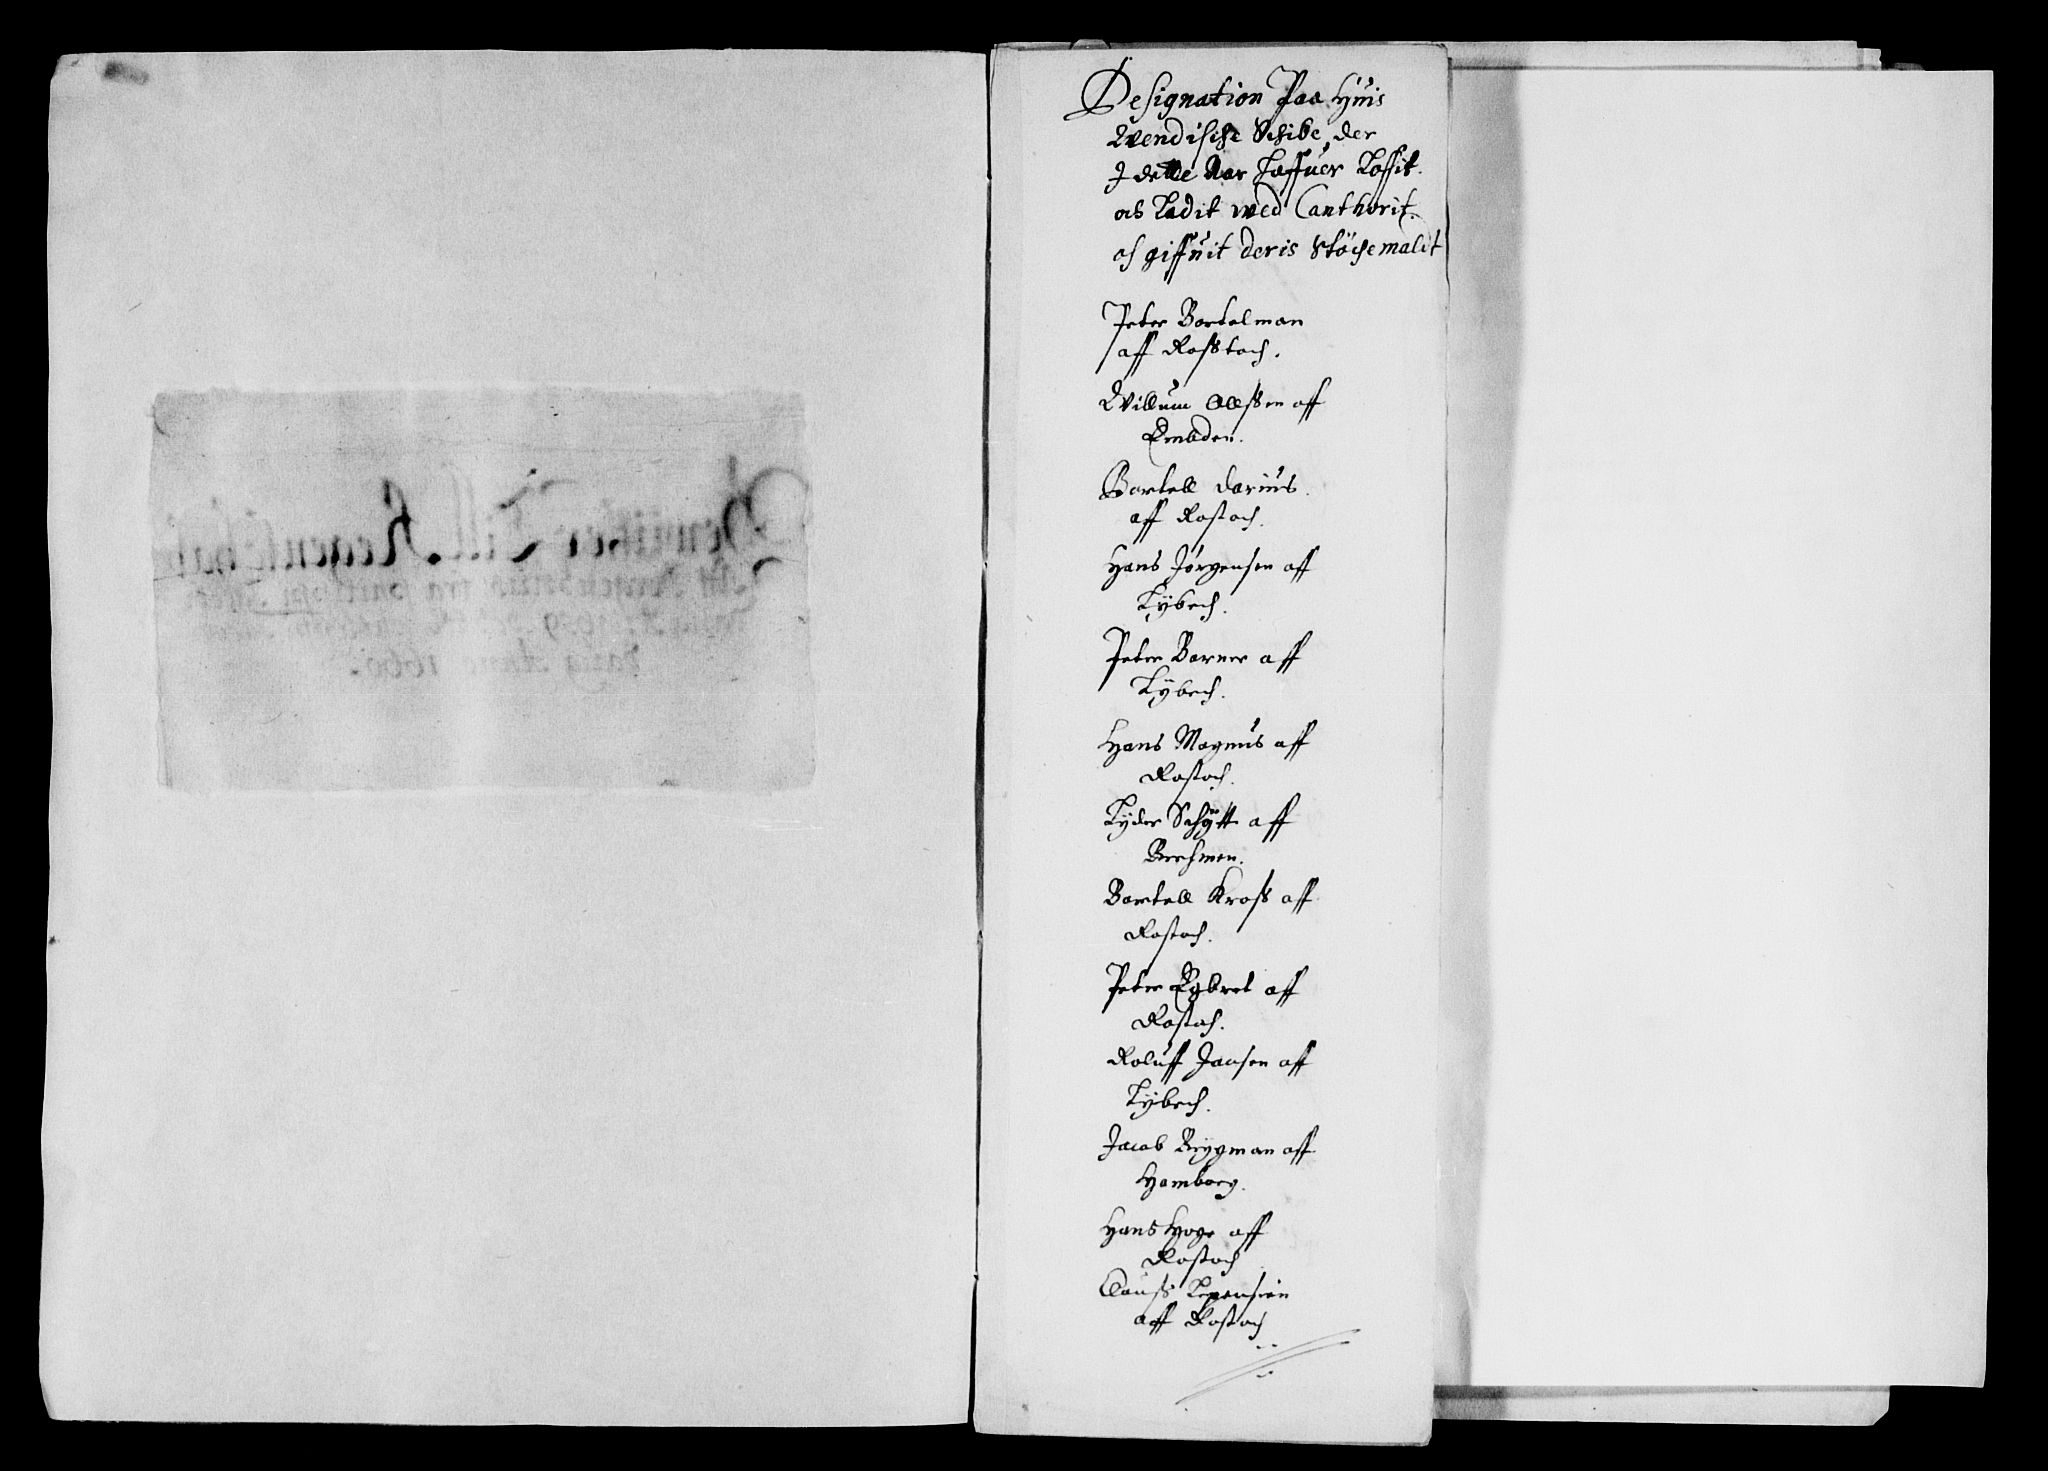 Designation Paa Huis
Wendische Schibe, der
J dette Aar haffuer Lossit.
och Ladit wed Canthorit.
och giffuit deris Støchemalit
Peter Bartelman
aff Rosstoch.
Willum Ollssen aff
Embden.
Bartell Darius.
aff Rostoch.
Hans Jørgensen aff
Lÿbech.
Peter Barner aff
Lÿbech.
Hans Magnus aff
Rostoch.
Lÿder Schÿtt aff
Brehmen.
Bartell Kross aff
Rostoch.
Peter Egbret aff
Rostoch.
Roluff Jansen aff
Lÿbech.
Jacob Brÿgman aff
Hamborg.
Hans Hoge aff
Rostoch
Clauss
aff Rostoch